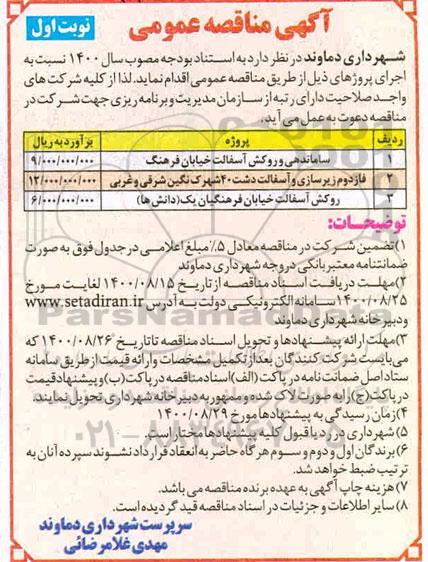 آگهی مناقصه عمومی
نوبت اول
شهرداری دماوند در نظر دارد به استناد بودجه مصوب سال ۱۴۰۰ نسبت به
اجرای پروژهای ذیل از طریق مناقصه عمومی اقدام نماید. لذا از کلیه شرکت های
واجد صلاحیت دارای رتبه از سازمان مدیریت و برنامه ریزی جهت شرکت در
مناقصه دعوت به عمل می آید.
ردیف پروژه برآورد به ریال
۱ ساماندهی و روکش آسفالت خیابان فرهنگ ۹/۰۰۰/۰۰۰/۰۰۰
۲ فاز دوم زیرسازی و آسفالت دشت ۴۰ شهرک نگین شرقی و غربی ۱۲/۰۰۰/۰۰۰/۰۰۰
۳ روکش آسفالت خیابان فرهنگیان یک (دانش ها) ۶/۰۰۰/۰۰۰/۰۰۰
توضیحات:
۱) تضمین شرکت در مناقصه معادل ۵٪ مبلغ اعلامی در جدول فوق به صورت
ضمانتنامه معتبر بانکی در وجه شهرداری دماوند
۲) مهلت دریافت اسناد مناقصه از تاریخ ۱۴۰۰/۰۸/۱۵ لغایت مورخ
۱۴۰۰/۰۸/۲۵ سامانه الکترونیکی دولت به آدرس www.setadiran.ir
و دبیرخانه شهرداری دماوند
۳) مهلت ارائه پیشنهادها و تحویل اسناد مناقصه تا تاریخ ۱۴۰۰/۰۸/۲۶ که
می بایست شرکت کنندگان بعد از تکمیل مشخصات و ارائه قیمت از طریق سامانه
ستاد اصل ضمانت نامه در پاکت (الف) اسناد مناقصه در پاکت (ب) و پیشنهاد قیمت
در پاکت (ج) را به صورت لاک شده و ممهور به دبیرخانه شهرداری تحویل نمایند.
۴) زمان رسیدگی به پیشنهادها مورخ ۱۴۰۰/۰۸/۲۹
۵) شهرداری در رد یا قبول کلیه پیشنهادها مختار است.
۶) برندگان اول و دوم و سوم هر گاه حاضر به انعقاد قرارداد نشوند سپرده آنان به
ترتیب ضبط خواهد شد.
۷) هزینه چاپ آگهی به عهده برنده مناقصه می باشد.
۸) سایر اطلاعات و جزئیات در اسناد مناقصه قید گردیده است.
سرپرست شهرداری دماوند
مهدی غلامرضائی
ParsNamadData